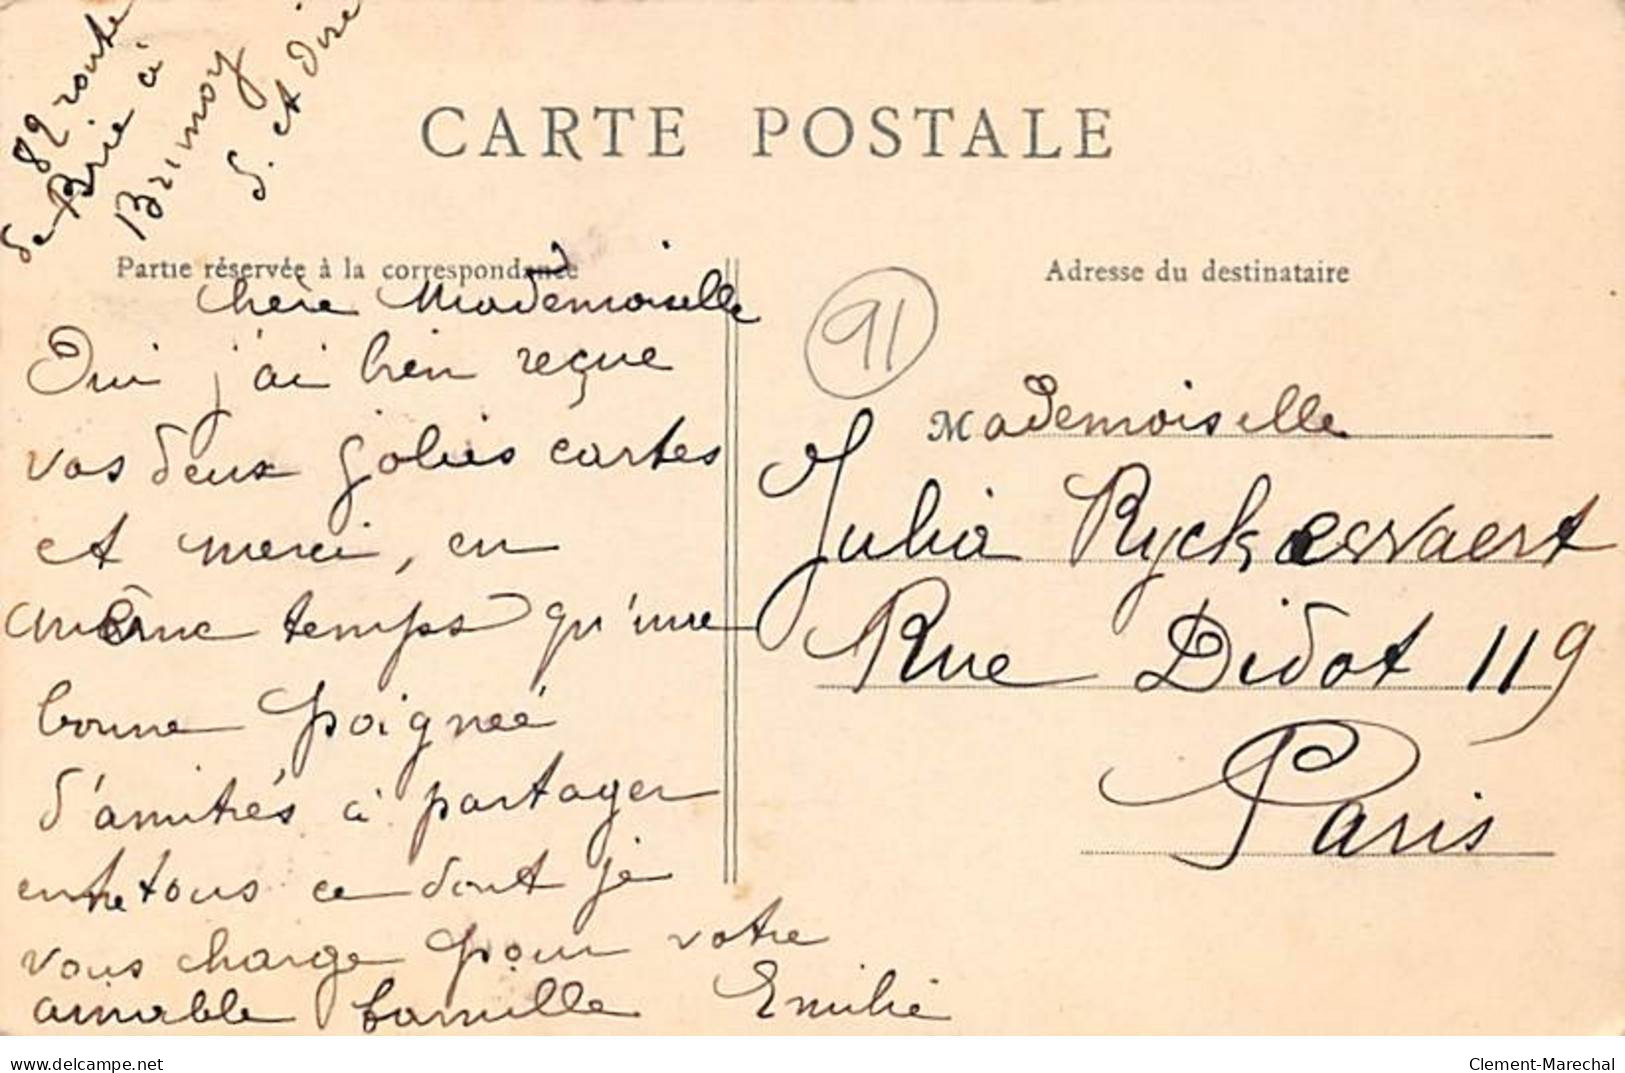 82 route
de Brie à
Brunoy
S. et Oise
CARTE POSTALE
Partie réservée à la correspondance
Adresse du destinataire
chère Mademoiselle
Oui j'ai bien reçue
vos deux jolies cartes
et merci, en
même temps qu'une
bonne poignée
d'amitiés à partager
entre tous ce dont je
vous charge pour votre
aimable famille Emilie
91
Mademoiselle
Julia Ryckewaert
Rue Didot 119
Paris
www.delcampe.net
Clement-Marechal